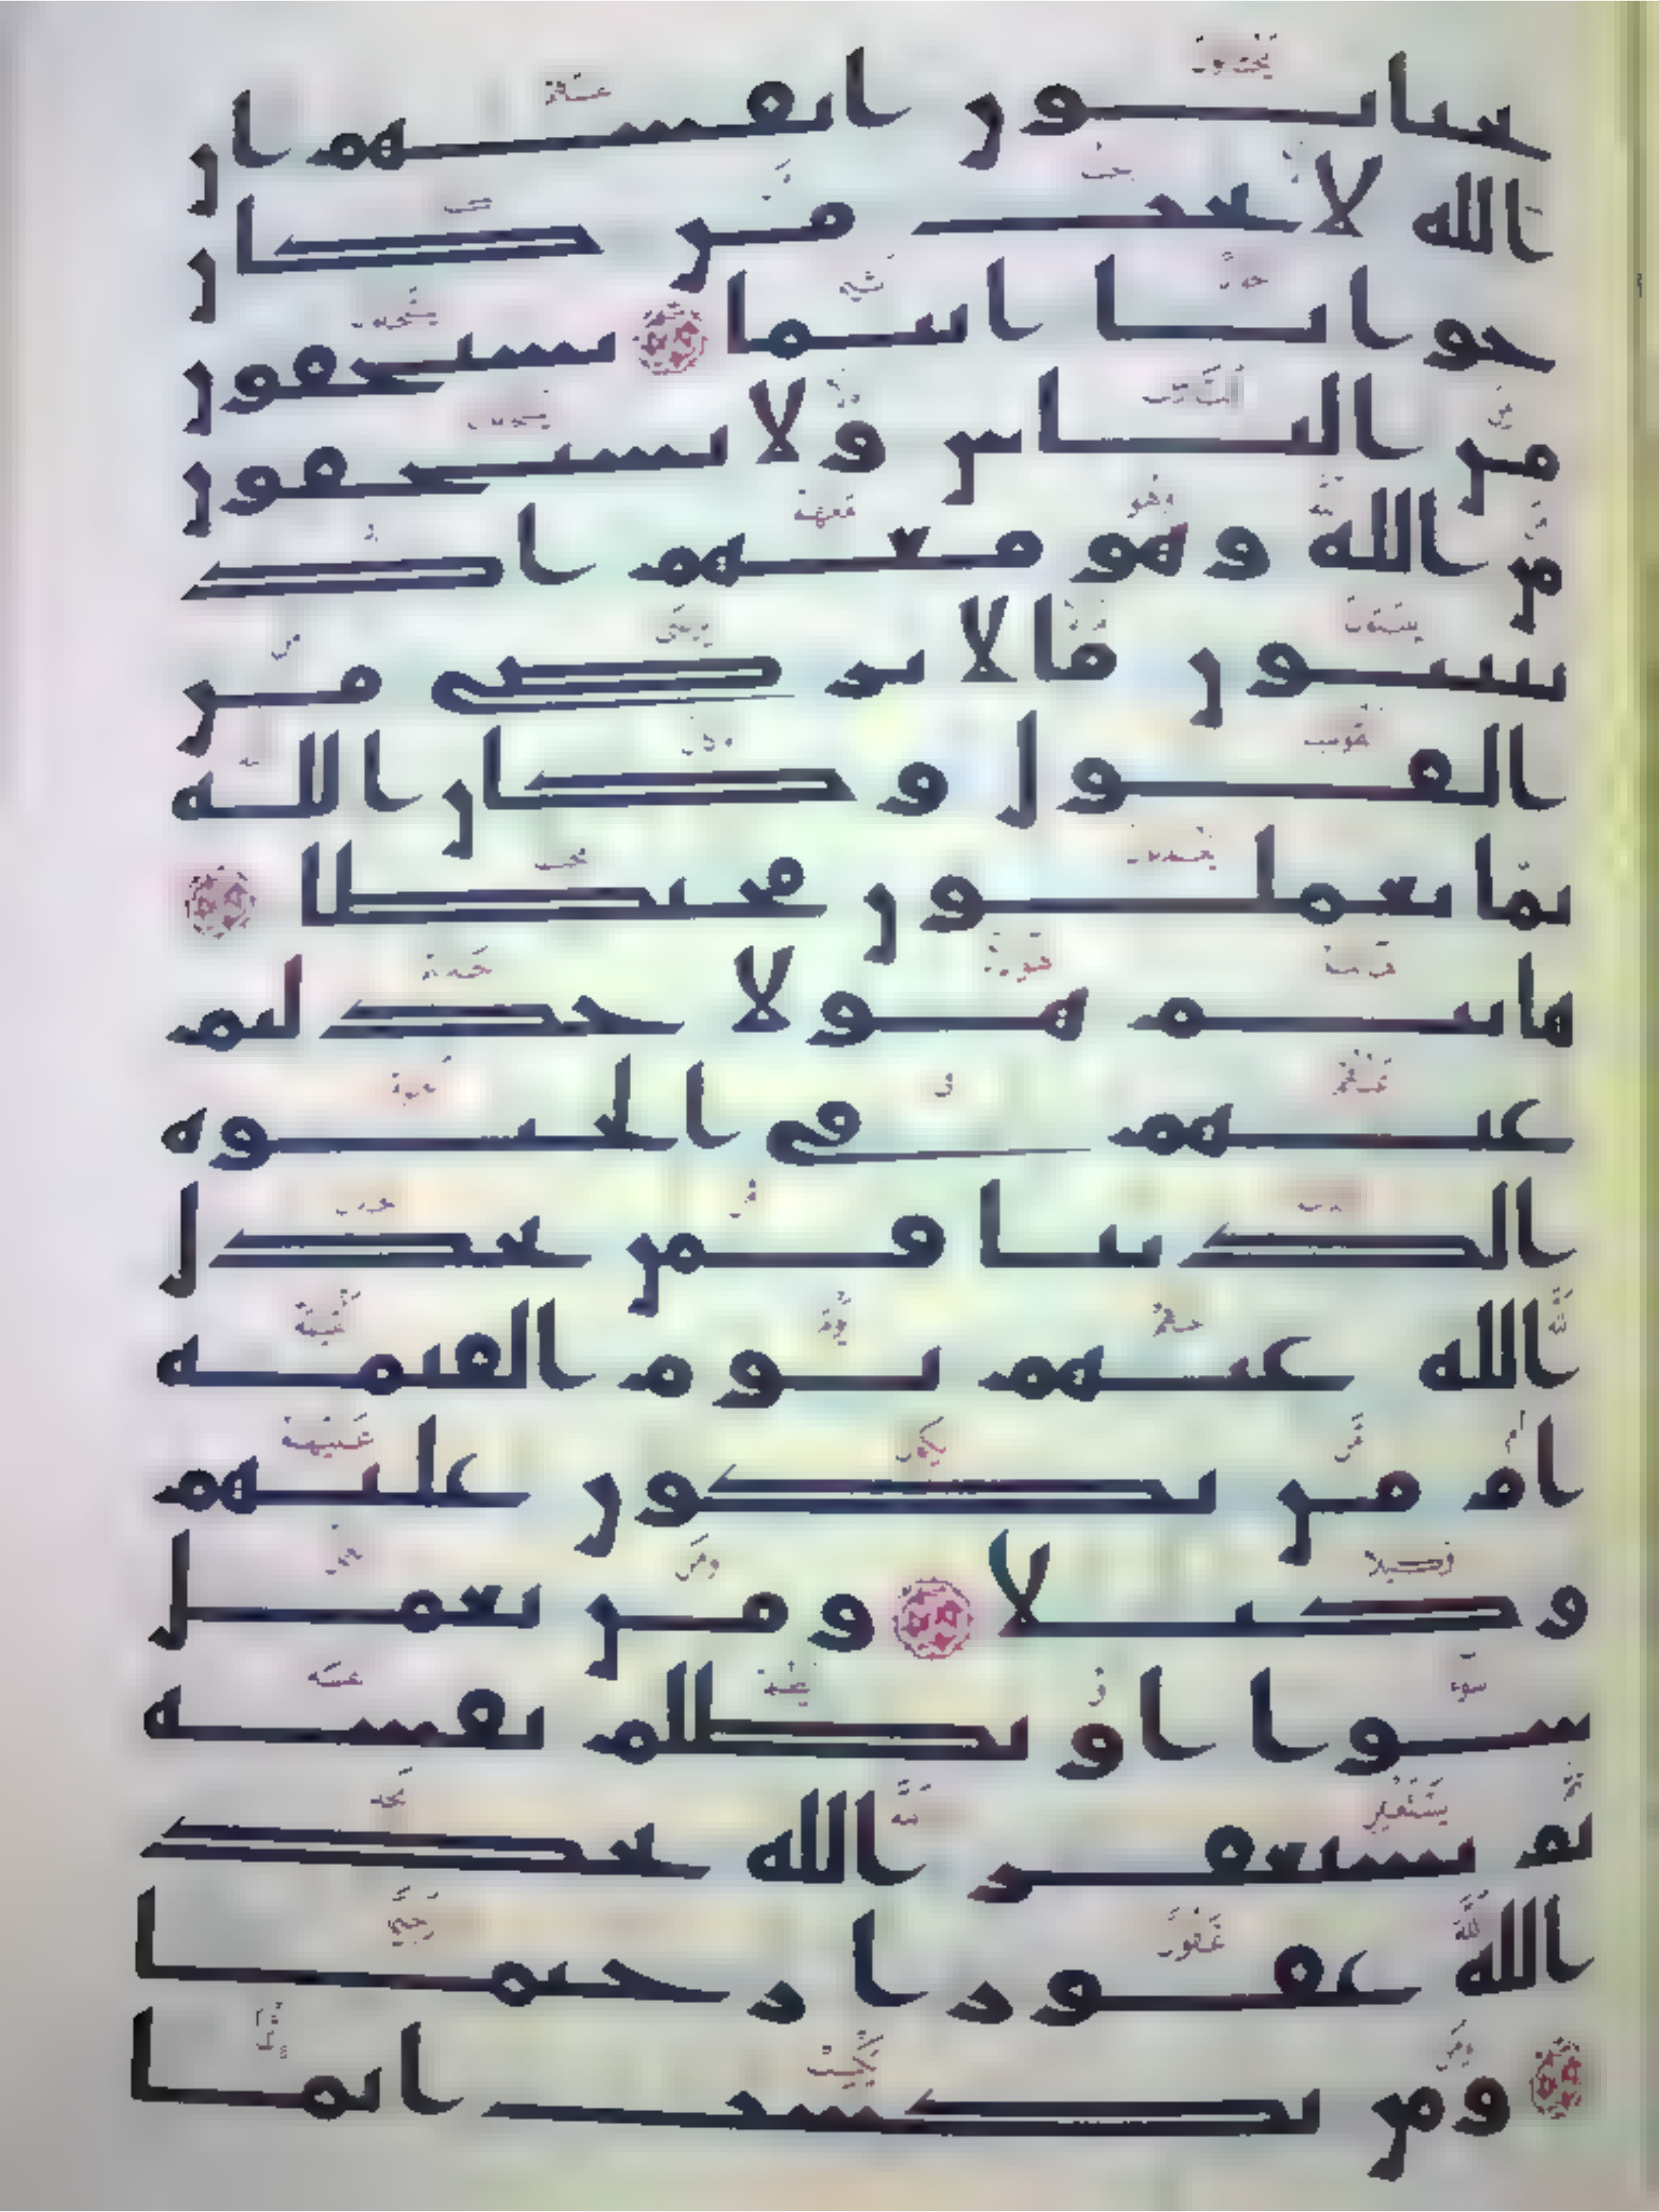 يختانون انفسهم ان
الله لا يحب من كان
خوانا اثيما ۝ يستخفون
من الناس ولا يستخفون
من الله وهو معهم اذ
يبيتون ما لا يرضى من
القول وكان الله
بما يعملون محيطا ۝
هانتم هولا جدلتم
عنهم في الحيوة
الدنيا فمن يجدل
الله عنهم يوم القيمة
ام من يكون عليهم
وكيلا ۝ ومن يعمل
سوا او يظلم نفسه
ثم يستغفر الله يجد
الله غفورا رحيما
۝ ومن يكسب اثما